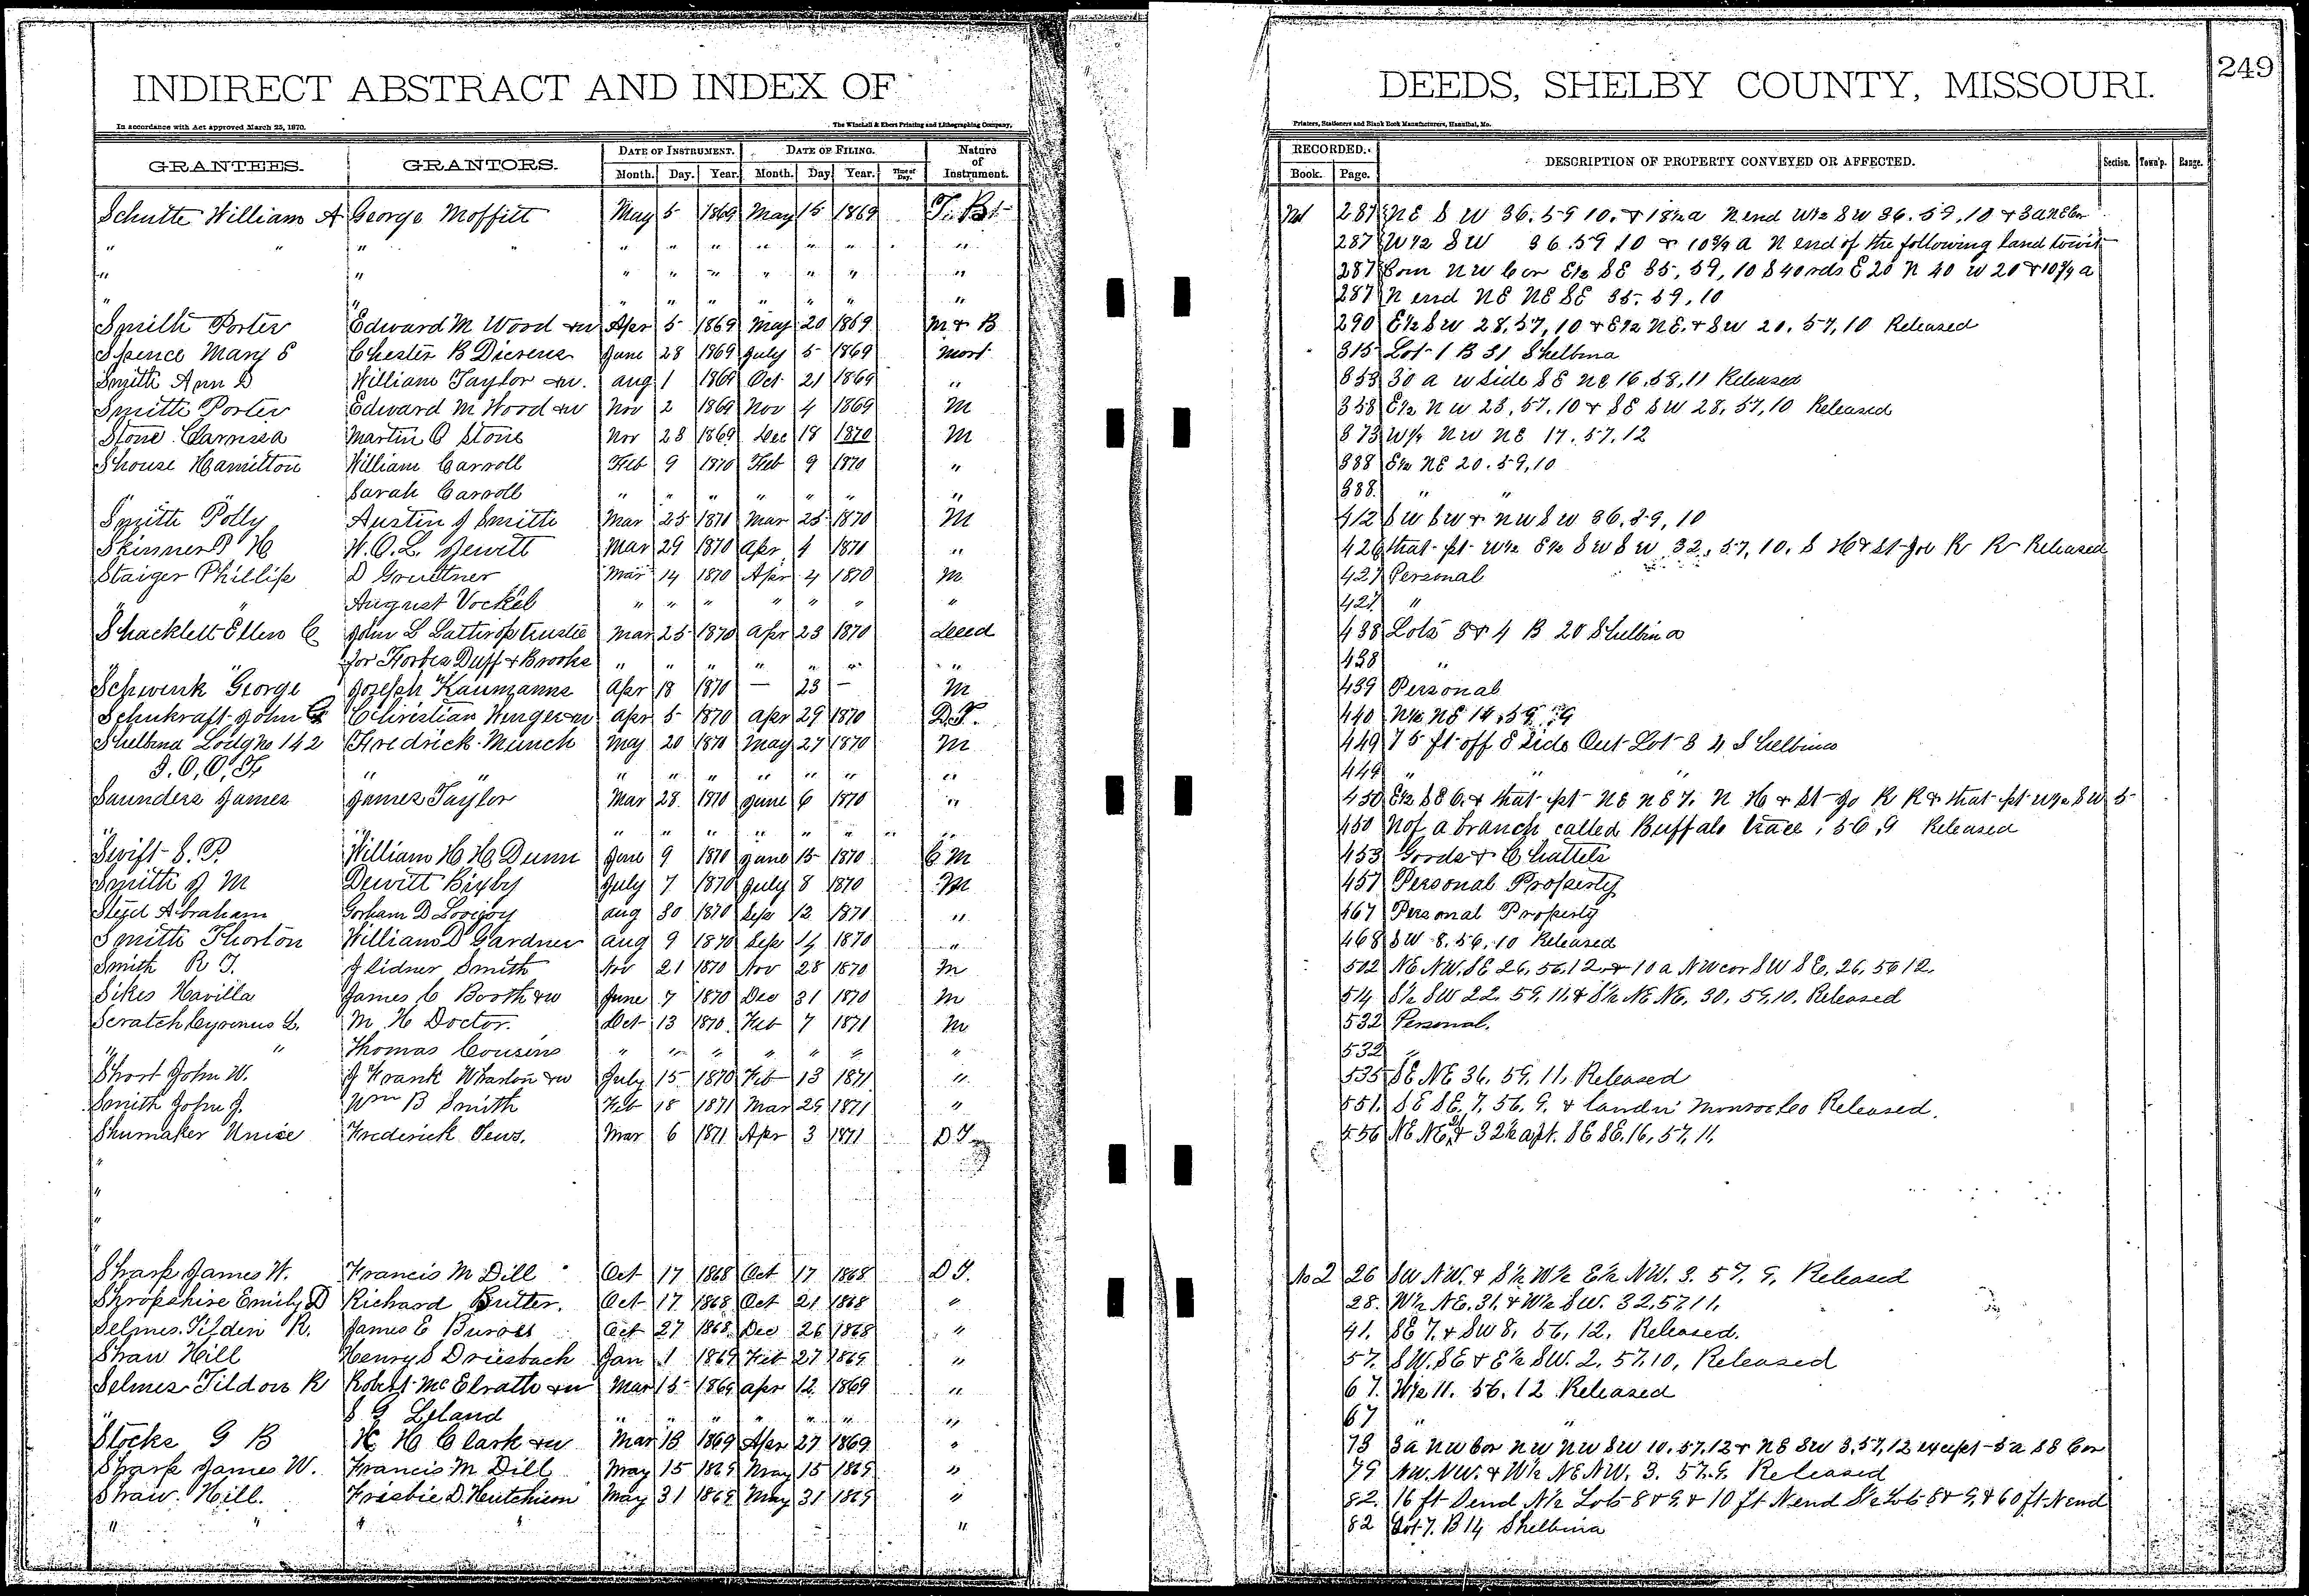 INDIRECT ABSTRACT AND INDEX OF DEEDS, SHELBY COUNTY, MISSOURI. 249
In accordance with Act approved March 25, 1870. The Winchell & Ebert Printing and Lithographing Company, Printers, Stationers and Blank Book Manufacturers, Hannibal, Mo.
GRANTEES. GRANTORS. DATE OF INSTRUMENT. DATE OF FILING. Nature of Instrument. RECORDED. DESCRIPTION OF PROPERTY CONVEYED OR AFFECTED. Section. Town'p. Range.
Month. Day. Year. Month. Day. Year. Time of Day. Book. Page.
Schutte William A George Moffitt May 5 1869 May 15 1869 287 NE SW 36.59 10. & 18½ a N end W½ SW 36.59.10 & 3a NE Cor
" " " " " " " " " " " 287 W½ SW 36.59 10 & 10¾ a N end of the following land towit
" " " " " " " " " 287 Com NW Cor E½ SE 35, 59, 10 S 40 rds E 20 N 40 W 20 & 10¾ a
" " " " " " " " " 287 N end NE NE SE 35. 59. 10
Smith Porter Edward M Wood &w Apr 5 1869 May 20 1869 M & B 290 E½ SW 28, 57, 10 & E½ NE. & SW 20. 57, 10 Released
Spence Mary E Chester B Dierens June 28 1869 July 5 1869 Mort 315 Lot 1 B 31 Shelbina
Smith Ann D William Taylor &w. Aug 1 1869 Oct 21 1869 " 353 30 a W Side SE NE 16, 58, 11 Released
Smith Porter Edward M Wood &w Nov 2 1869 Nov 4 1869 M 358 E½ NW 28, 57, 10 & SE SW 28, 57, 10 Released
Stone Clarrissa Martin C Stone Nov 23 1869 Dec 18 1870 M 373 W½ NW NE 17. 57. 12
Shouse Hamilton William Carroll Feb 9 1870 Feb 9 1870 " 388 E½ NE 20. 59, 10
Sarah Carroll " " " " " " " 388. " "
Smith Polly Austin J Smith Mar 25 1870 Mar 25 1870 M 412 SW SW & NW SW 36. 59, 10
Skinner P H W. O. L. Jewett Mar 29 1870 Apr 4 1870 " 426 that pt W½ E½ SW SW 32, 57, 10. S H & St Jo R R Released
Staiger Phillip D Gruttner Mar 14 1870 Apr 4 1870 M 427 Personal
" " August Vockel " " " " " " " 427. "
Shacklett Ellen C John L Lathrop trustee Mar 25 1870 Apr 23 1870 Deed 438 Lots 3 & 4 B 20 Shelbina
" " for Forbes Duff & Brooks " " " " " " " 438 "
Schwenk George Joseph Kaumanns Apr 18 1870 — 23 — M 439 Personal
Schukraft John G Christian Unger &w Apr 5 1870 Apr 29 1870 D.T. 440 N½ NE 14, 59, 9
Shelbina Lodg No 142 Fredrick Munch May 20 1870 May 27 1870 M 449 75 ft off E Side Out Lot 3 4 Shelbina
I. O, O, F " " " " " " " " " 449 " " "
Saunders James James Taylor Mar 28 1870 June 6 1870 " 450 E½ SE 6. & that pt NE NE 7. N H & St Jo R R & that pt W½ SW 5
" " " " " " " " " 450 N of a branch called Buffalo trace, 56, 9 Released
Swift S. P. William H H Dunn June 9 1870 June 15 1870 C M 453 Goods & Chattels
Smith J M Dewitt Bixby July 7 1870 July 8 1870 M 457 Personal Property
Abraham Gorham D Lovejoy Aug 30 1870 Sep 12 1870 " 467 Personal Property
Smith Thorton William D Gardner Aug 9 1870 Sep 14 1870 " 468 SW 8. 56. 10 Released
Smith R T. J Sidner Smith Nov 21 1870 Nov 28 1870 M 502 NE NW. SE 26, 56, 12. & 10 a NW cor SW SE. 26, 56 12.
Sikes Havilla James C Booth &w June 7 1870 Dec 31 1870 M 514 S½ SW 22. 59, 11. & S½ NE NE. 30. 59, 10. Released
Scratch Cyrenus L. M H Doctor. Oct 13 1870. Feb 7 1871 M 532 Personal.
" " Thomas Cousins " " " " " " " 532 "
Short John W. J Frank Wharton &w July 15 1870 Feb 13 1871 " 535 SE NE 36, 59, 11, Released
Smith John J. Wm B Smith Feb 18 1871 Mar 29 1871 " 551. SE SE, 7, 56, 9, & land in Monroe Co Released.
Shumaker Unice Frederick Mar 6 1871 Apr 3 1871 D T 556 NE NE & 32½ a pt. SE SE. 16, 57, 11,
"
"
"
"
Sharp James W. Francis M Dill Oct 17 1868 Oct 17 1868 D T. No 2 26 SW NW. & S½ W½ E½ NW. 3. 57. 9, Released
Shropshire Emily D Richard Britter. Oct 17 1868 Oct 21 1868 " 28. W½ NE. 31, & W½ SW. 32, 57, 11,
Selmes. Tilden R. James E Oct 27 1868 Dec 26 1868 " 41. SE 7. & SW 8, 56, 12, Released.
Shaw Hill Henry S Driesback Jan 1 1869 Feb 27 1869 " 57. SW. SE & E½ SW. 2, 57, 10, Released
Selmes Tildon R Robert McElrath &w Mar 15 1869 Apr 12 1869 " 67. W½ 11. 56. 12 Released
" S G Leland " " " " " " " 67 " "
Stocks G B H. H Clark &w Mar 13 1869 Apr 27 1869 " 73 3a NW Cor NW NW SW 10. 57, 12 & NE SW 3, 57, 12 except 5a SE Cor
Sharp James W. Francis M Dill May 15 1869 May 15 1869 " 79 NW. NW. & W½ NE NW. 3. 57. 9. Released
Shaw. Hill. Frisbie D. Hutchison May 31 1869 May 31 1869 " 82. 16 ft S end N½ Lots 8 & 9, & 10 ft N end S½ Lots 8 & 9, & 60 ft N end
" " " " " 82 Lot 7. B 14 Shelbina